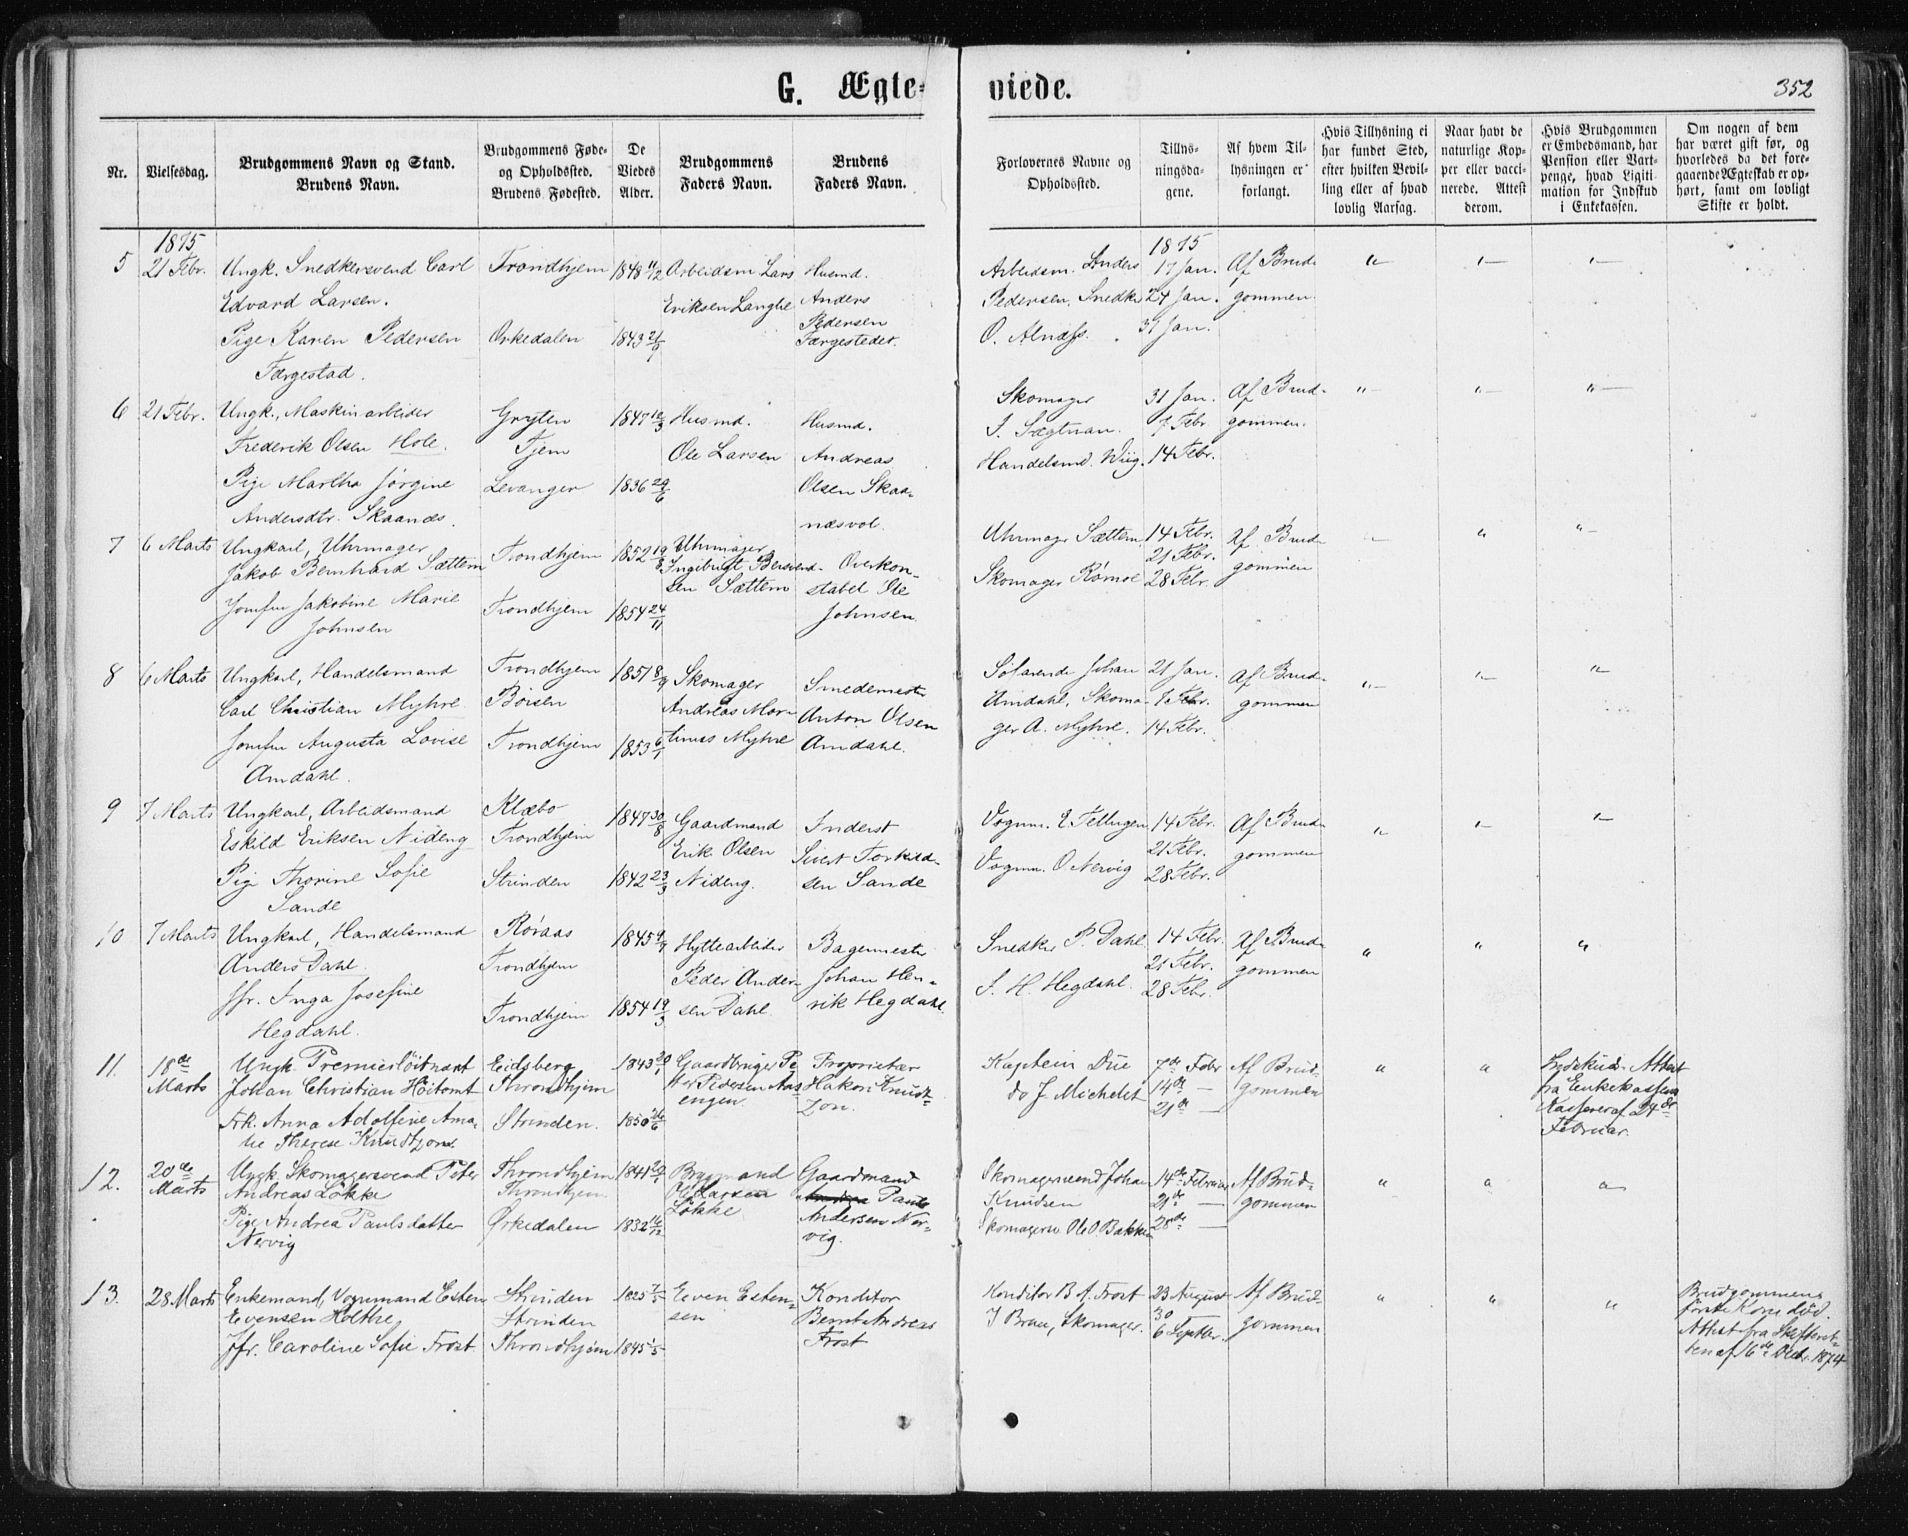 G. Ægte-
viede.
352
Nr.
Vielsesdag.
Brudgommens Navn og Stand.
Brudens Navn.
Brudgommens Føde-
og Opholdssted.
Brudens Fødested.
De
Viedes
Alder.
Brudgommens
Faders Navn.
Brudens
Faders Navn.
Forlovernes Navne og
Opholdssted.
Tillys-
ningsda-
gene.
Af hvem Til-
lysningen er
forlangt.
Hvis Tillysning ei
har fundet Sted,
efter hvilken Bevil-
ling eller af hvad
lovlig Aarsag.
Naar havt de
naturlige Kop-
per eller vacci-
nerede. Attest
derom.
Hvis Brudgommen
er Embedsmand, har
Pension eller Vart-
penge, hvad Ligiti-
mation for Indskud
i Enkekassen.
Om nogen af dem
har været gift før, og
hvorledes da det fore-
gaaende Ægteskab er op-
hørt, samt om lovligt
Skifte er holdt.
1875
5
21 Febr.
Ungk. Snedkersvend Carl
Edvard Larsen.
Pige Karen Pedersen
Færgestad.
Trondhjem
Orkedalen
1848 11/12
1843 21/9
Arbeidsm Lars
Eriksen Langhe
Husmd.
Anders
Pedersen
Færgestedet.
Arbeidsm. Anders
Pedersen, Snedker
O. Alnæss.
1875
17 Jan.
24 Jan.
31 Jan.
Af Brud-
gommen
6
21 Febr.
Ungk., Maskinarbeider
Frederik Olsen Hole.
Pige Martha Jørgine
Andersdtr. Skaanæs.
Grytten
Tjem
Levanger
1847 12/3
1836 29/6
Husmd.
Ole Larsen
Husmd.
Andreas
Olsen Skaa-
næsvol.
Skomager
I. Sægtnan.
Handelsmd. Wiig.
31 Jan.
7 Febr
14 Febr.
Af Brud-
gommen.
7
6 Marts
Ungkarl, Uhrmager
Jakob Bernhard Sættem
Jomfru Jakobine Marie
Johnsen
Trondhjem
Trondhjem
1852 19/8
1854 24/11
Uhrmager
Ingebrigt Bersvend-
sen Sættem
Overkon-
stabel Ole
Johnsen
Uhrmager Sættem
Skomager Rømoe
14 Febr.
21 Febr.
28 Febr.
Af Brud-
gommen
8
6 Marts
Ungkarl, Handelsmand
Carl Christian Myhre
Jomfru Augusta Lovise
Amdahl.
Trondhjem
Børsen
Trondhjem
1851 8/9
1853 6/1
Skomager
Andreas Mar-
tinus Myhre
Smedemester
Anton Olsen
Amdahl.
Søfarende Johan
Amdahl, Skoma-
ger A. Myhre.
21 Jan.
7 Febr.
14 Febr.
Af Brud-
gommen
9
7 Marts
Ungkarl, Arbeidsmand
Eskild Eriksen Nideng
Pige Thorine Sofie
Sande
Klæbo
Trondhjem
Strinden
1847 30/8
1842 23/3
Gaardmand
Erik Olsen
Nideng.
Inderst
Sivert Torkild-
sen Sande
Vognm. E. Tellugen
Vognm. O Nervig
14 Febr.
21 Febr.
28 Febr.
Af Brud-
gommen
10
7 Marts
Ungkarl, Handelsmand
Anders Dahl.
Jfr. Inga Josefine
Hegdahl.
Røraas
Trondhjem
Trondhjem
1845 9/9
1854 19/3
Hyttearbeider
Peder Ander-
sen Dahl.
Bagermester
Johan Hen-
rik Hegdahl
Snedker P. Dahl
J. H. Hegdahl.
14 Febr.
21 Febr.
28 Febr.
Af Brud-
gommen
11.
18de
Marts
Ungk. Premierløitnant
Johan Christian Höitomt
Frk. Anna Adolfine Ama-
lie Therese Knudtzon
Eidsberg
Throndhjem
Strinden.
1843 20/1
1850 26/6
Gaardbruger Pe-
ter Pedersen Aas-
engen
Proprietær
Hakon Knudt-
zon.
Kaptein Due
do J Michelet
7de Febr
14de —
21de —
Af Brud-
gommen
Indskud. Attest
fra Enkekassens
Kasserer af 24de
Februar.
12.
20de
Marts
Ungk. Skomagersvend Peter
Andreas Løkke
Pige Andrea Paulsdatter
Nervig
Throndhjem
Throndhjem
Ørkedalen
1841 29/7
1832 16/12
Brygmand
Ole Larsen
Løkke
Gaardmand
Paul
Andersen Ner-
vig.
Skomagersvend Johan
Knudsen
Skomagersv. Ole O Bakken
14de Februar
21de —
28de —
Af Brud-
gommen
13.
28 Marts
Enkemand, Vognmand Esten
Evensen Holthe
Jfr. Caroline Sofie Frost
Strinden
Strinden
Throndhjem
1825 7/5
1845 1/5
Even Esten-
sen
Konditor
Bernt Andreas
Frost
Konditor B. A. Frost
J Brau, Skomager.
23 August
30 —
6 Septbr.
Af Brud-
gommen
Brudgommens
første Kone død.
Attest fra Skifteret-
ten af 16de Decbr. 1874